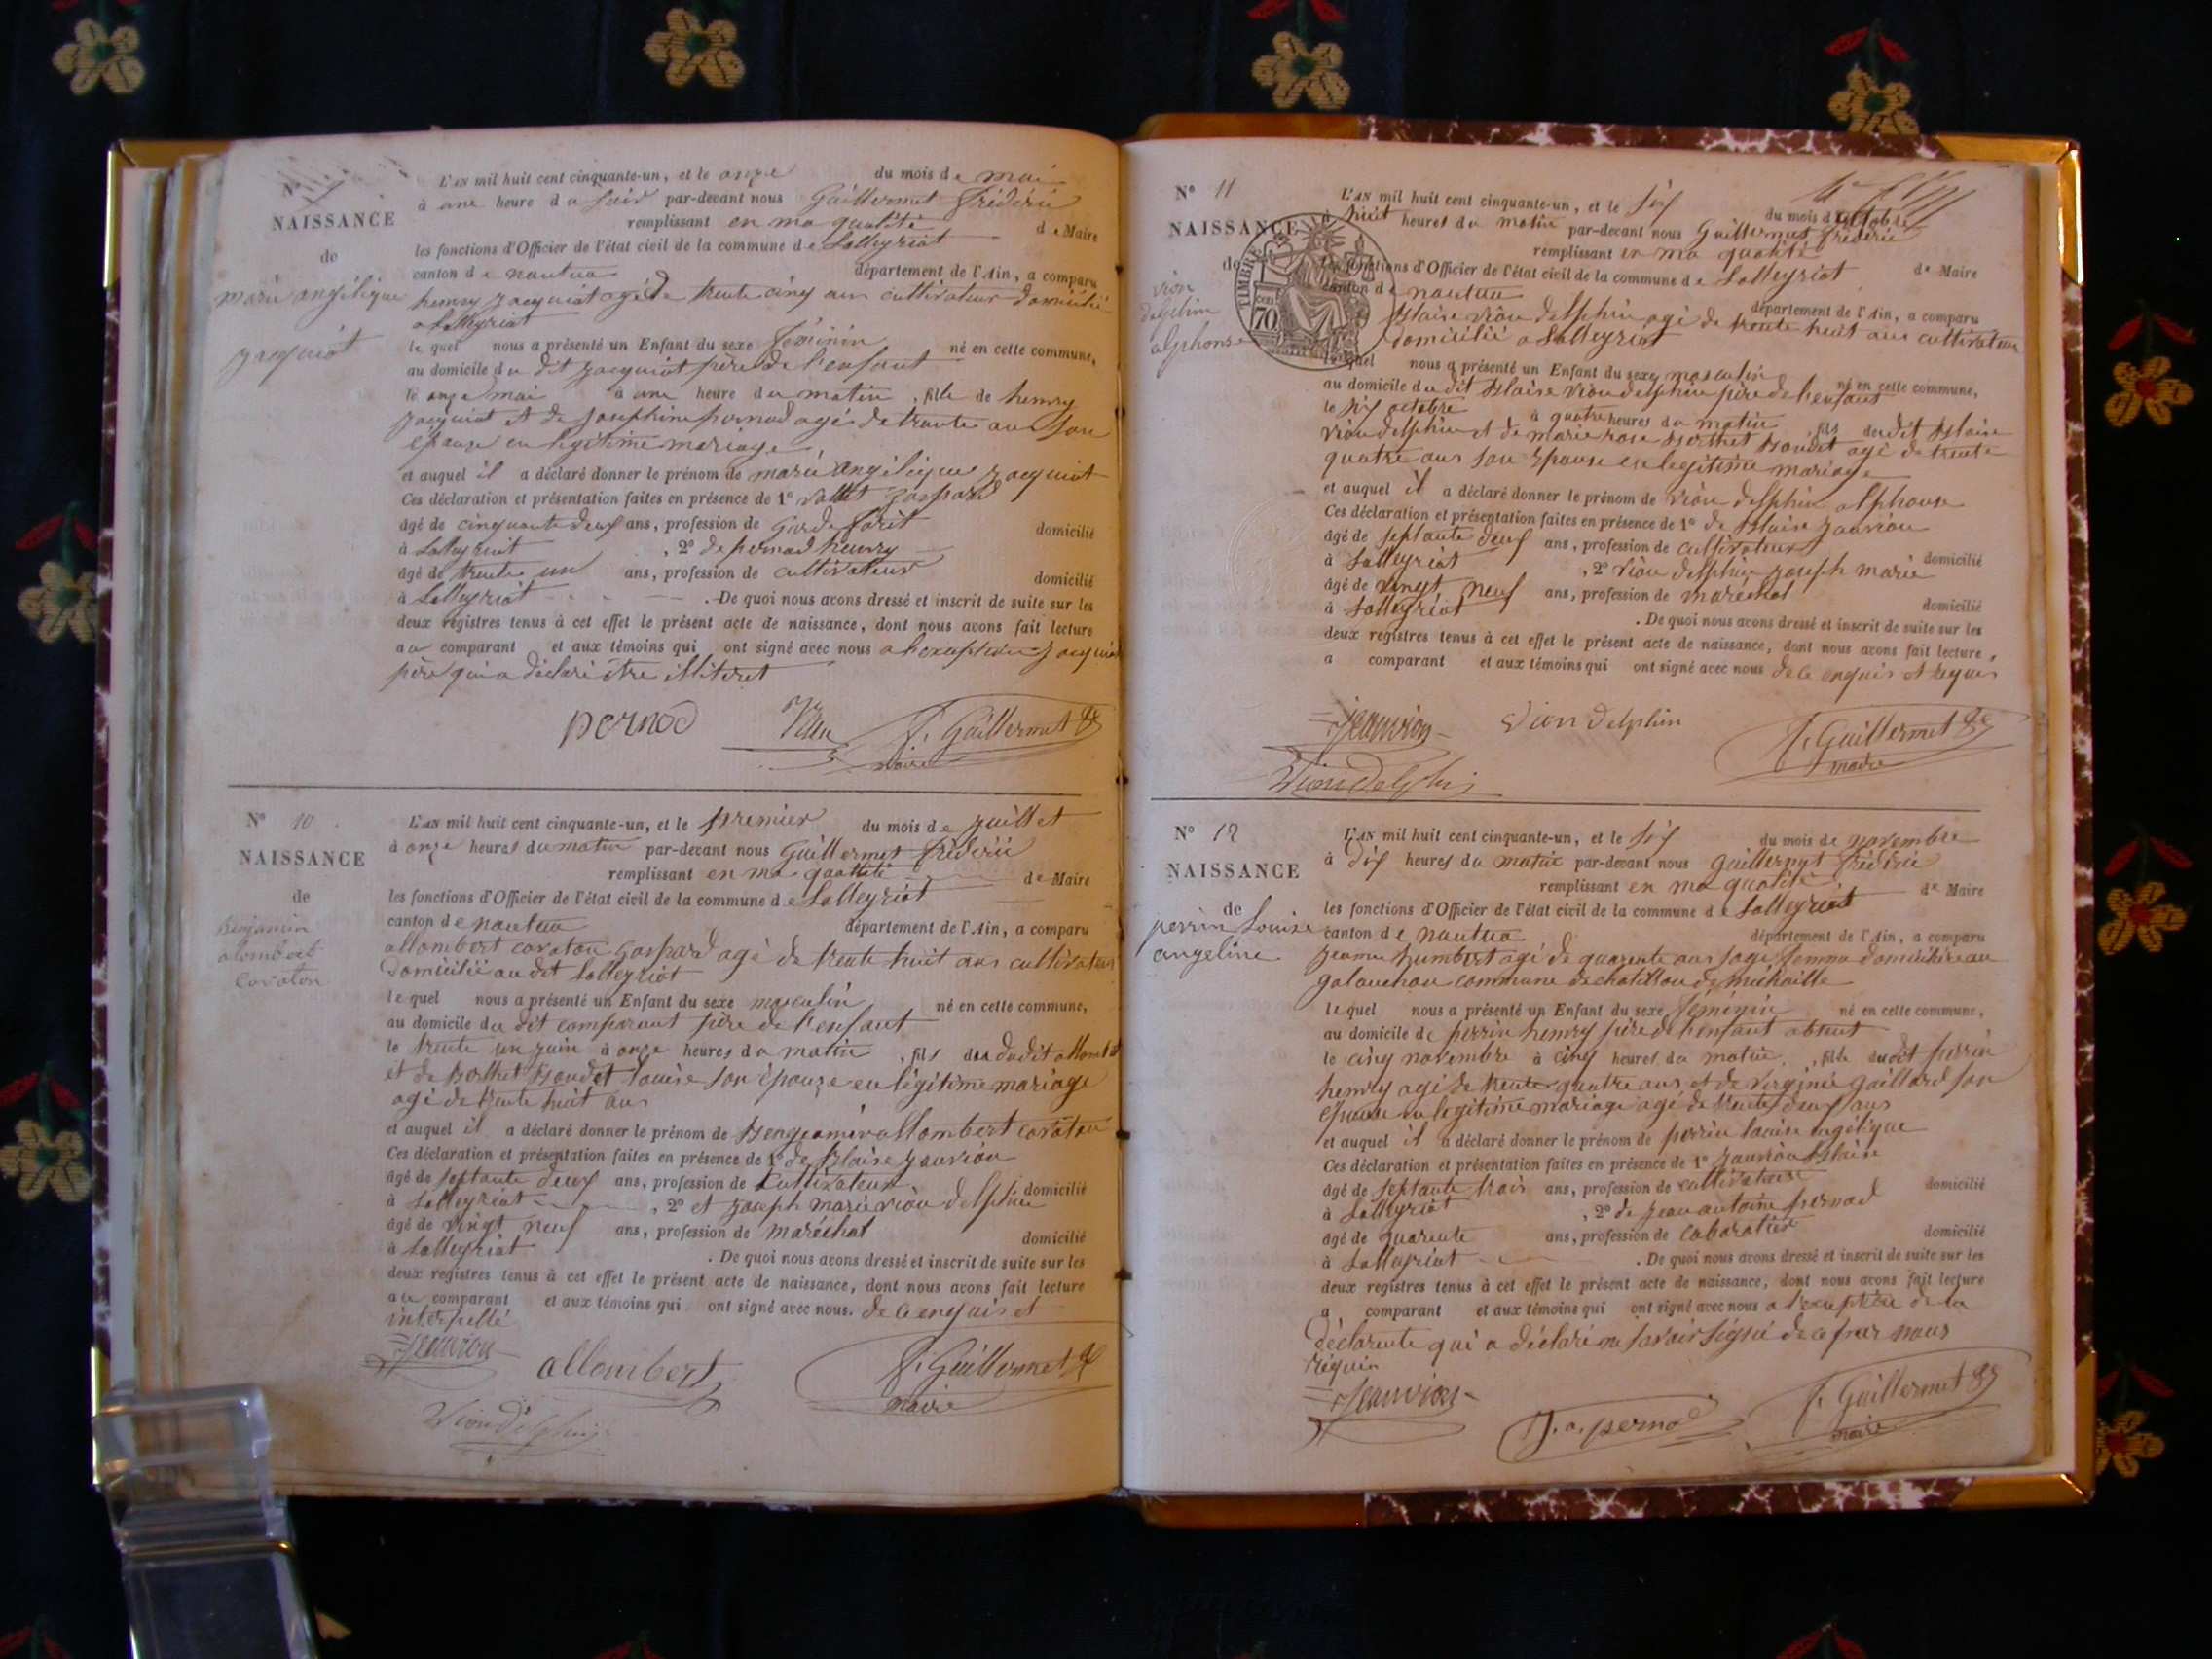 N°
NAISSANCE
de
marie angélique
jacquiot
L'AN mil huit cent cinquante-un, et le onze du mois de mai
à une heure du soir par-devant nous Guillermet frédéric
remplissant en ma qualité de Maire
les fonctions d'Officier de l'état civil de la commune de Lalleyriat
canton de nantua département de l'Ain, a comparu
henry jacquiot agé de trente cinq ans cultivateur domicilié
a Lalleyriat
le quel nous a présenté un Enfant du sexe féminin né en cette commune,
au domicile du dit jacquiot père de l'enfant
le onze mai à une heure du matin, fille de henry
jacquiot et de josephine pernod agé de trente ans son
épouse en legitime mariage
et auquel il a déclaré donner le prénom de marie angélique jacquiot
Ces déclaration et présentation faites en présence de 1° vallet gaspard
âgé de cinquante deux ans, profession de garde forêt domicilié
à Lalleyriat, 2° de pernod henry
âgé de trente un ans, profession de cultivateur domicilié
à Lalleyriat. De quoi nous avons dressé et inscrit de suite sur les
deux registres tenus à cet effet le présent acte de naissance, dont nous avons fait lecture
au comparant et aux témoins qui ont signé avec nous a l'exeption jacquiot
père qui a déclaré être illiteret
pernod F. Guillermet
maire
N° 10
NAISSANCE
de
Benjamin
alombert
Cavaton
L'AN mil huit cent cinquante-un, et le premier du mois de juillet
à onze heures du matin par-devant nous Guillermet frédéric
remplissant en ma qualité de Maire
les fonctions d'Officier de l'état civil de la commune de Lalleyriat
canton de nantua département de l'Ain, a comparu
allombert cavaton gaspard agé de trente huit ans cultivateur
domicilié au dit Lalleyriat
le quel nous a présenté un Enfant du sexe masculin né en cette commune,
au domicile du dit comparant père de l'enfant
le trente un juin à onze heures du matin, fils du dudit allombert
et de Berthet Bondet Louise son épouze en légitime mariage
agé de trente huit ans
et auquel il a déclaré donner le prénom de Bengeamin allombert cavaton
Ces déclaration et présentation faites en présence de 1° de Blaise janvion
âgé de septante deux ans, profession de Cultivateur domicilié
à Lalleyriat, 2° et joseph marie vion delphin
âgé de vingt neuf ans, profession de maréchal domicilié
à Lalleyriat. De quoi nous avons dressé et inscrit de suite sur les
deux registres tenus à cet effet le présent acte de naissance, dont nous avons fait lecture
au comparant et aux témoins qui ont signé avec nous. de ce enquis et
interpellé
Jeanvion allombert F. Guillermet
maire
Viondelphin
N° 11
NAISSANCE
de
vion
delphin
alphonse
TIMBRE
70
L'AN mil huit cent cinquante-un, et le six du mois d'octobre
à huit heures du matin par-devant nous Guillermet frédéric
remplissant en ma qualité de Maire
les fonctions d'Officier de l'état civil de la commune de Lalleyriat
canton de nantua département de l'Ain, a comparu
Blaise vion delphin agé de trente huit ans cultivateur
domicilié a Lalleyriat
le quel nous a présenté un Enfant du sexe masculin né en cette commune,
au domicile du dit Blaise vion delphin père de l'enfant
le six octobre à quatre heures du matin, fils du dit Blaise
vion delphin et de marie rose Berthet Bondet agé de trente
quatre ans son épouse en legitime mariage
et auquel il a déclaré donner le prénom de vion delphin alphonse
Ces déclaration et présentation faites en présence de 1° de Blaise janvion
âgé de septante deux ans, profession de cultivateur domicilié
à Lalleyriat, 2° vion delphin joseph marie
âgé de vingt neuf ans, profession de maréchal domicilié
à Lalleyriat. De quoi nous avons dressé et inscrit de suite sur les
deux registres tenus à cet effet le présent acte de naissance, dont nous avons fait lecture,
a comparant et aux témoins qui ont signé avec nous de ce enquis et requis
Jeanvion Vion delphin F. Guillermet
maire
Viondelphin
N° 12
NAISSANCE
de
perrin Louise
angeline
L'AN mil huit cent cinquante-un, et le six du mois de novembre
à dix heures du matin par-devant nous Guillermet frédéric
remplissant en ma qualité de Maire
les fonctions d'Officier de l'état civil de la commune de Lalleyriat
canton de nantua département de l'Ain, a comparu
jeanne humbert agé de quarente ans sage femme domiciliée au
galanchou commune de chatillon de michaille
le quel nous a présenté un Enfant du sexe féminin né en cette commune,
au domicile de perrin henry père de l'enfant absent
le cinq novembre à cinq heures du matin, fille du dit perrin
henry agé de trente quatre ans et de virginie gaillard son
épouse en legitime mariage agé de trente deux ans
et auquel il a déclaré donner le prénom de perrin louise angélique
Ces déclaration et présentation faites en présence de 1° janvion Blaise
âgé de septante trois ans, profession de cultivateur domicilié
à Lalleyriat, 2° de jean antoine pernod
âgé de quarente ans, profession de cabaratier domicilié
à Lalleyriat. De quoi nous avons dressé et inscrit de suite sur les
deux registres tenus à cet effet le présent acte de naissance, dont nous avons fait lecture
a comparant et aux témoins qui ont signé avec nous a l'exeption de la
déclarente qui a déclaré ne savoir signé de ce par nous
réquis
Jeanvion J. a. pernod F. Guillermet
maire